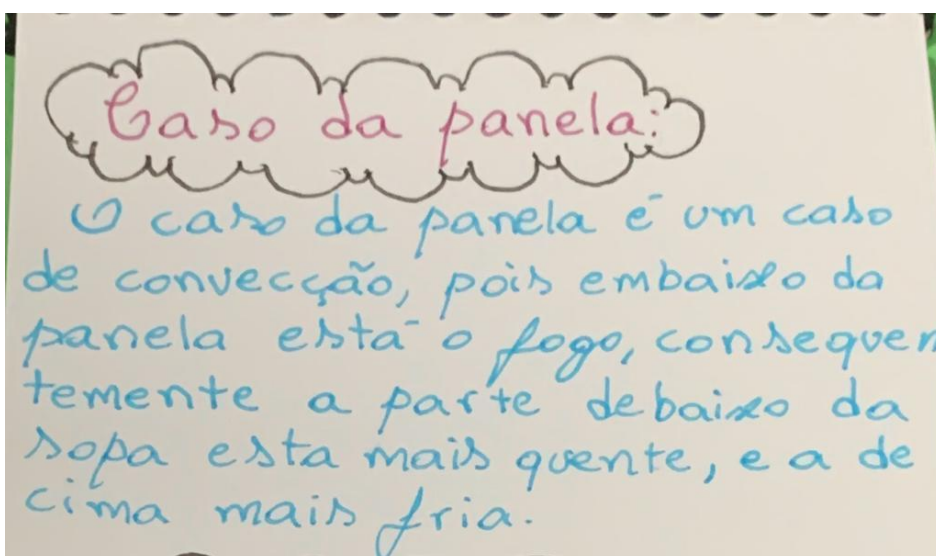 Caso da panela:
O caso da panela é um caso
de convecção, pois embaixo da
panela está o fogo, consequen
temente a parte debaixo da
sopa esta mais quente, e a de
cima mais fria.